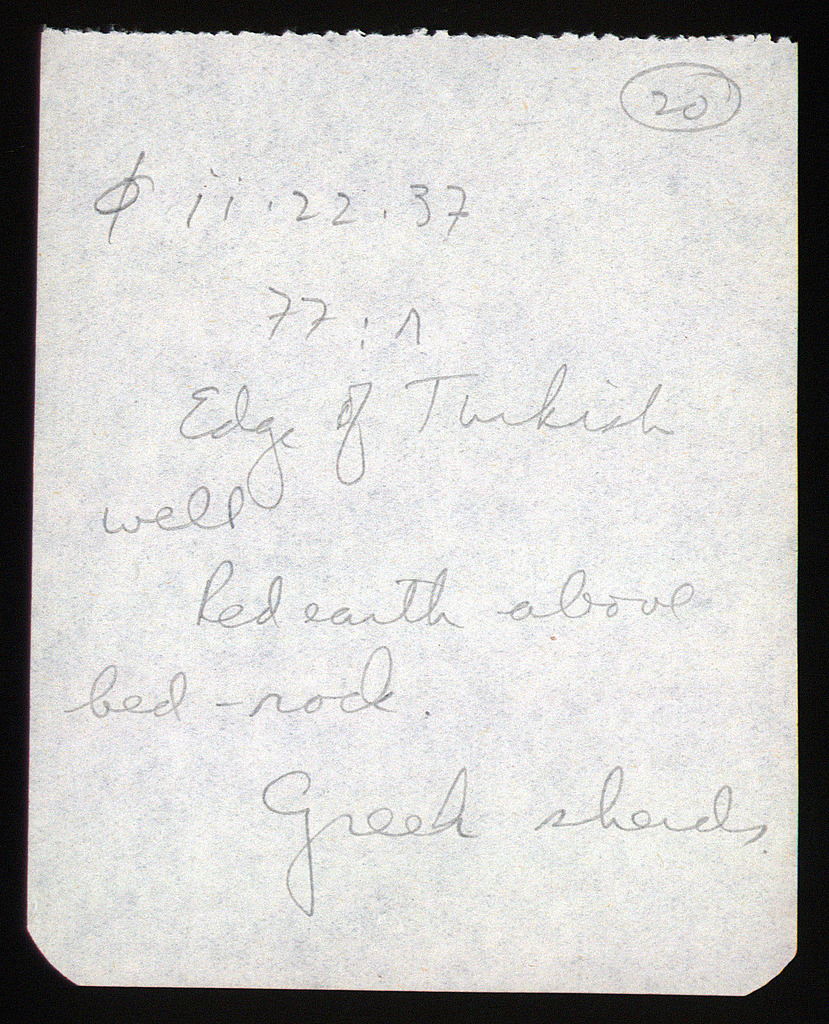 20
ϕ ii.22.37
77:Λ
Edge of Turkish
well
Red earth above
bed-rock.
Greek sherds.